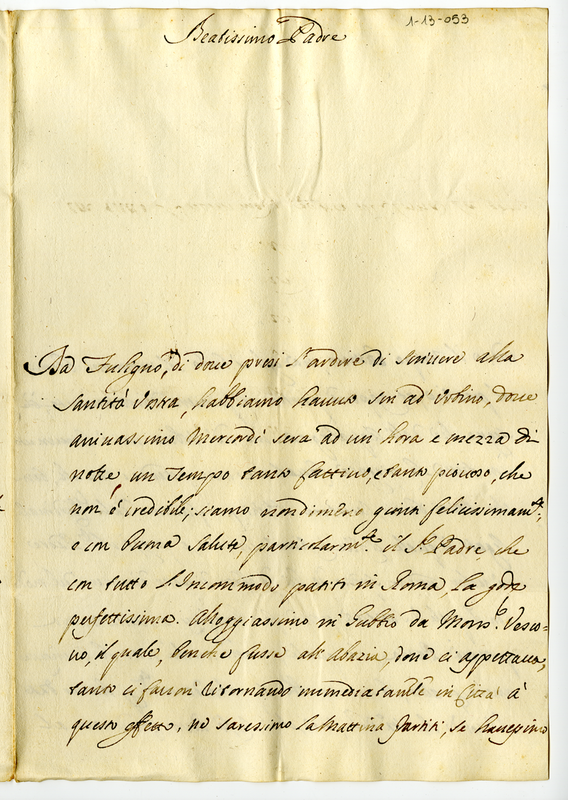 1-13-053
Beatissimo Padre
Da Fuligno, di doue presi l'ardire di scriuere alla
Santità Vostra, habbiamo hauuto sin ad' Vrbino, doue
arriuassimo Mercordi sera ad un' hora e mezza di
notte un Tempo tanto cattiuo, e tanto piouoso, che
non é credibile; siamo nondimeno gionti felicissimam.te,
e con buona salute, particolarm.te il S.r Padre, che
con tutto l'Incommodo patiti in Roma, la gode
perfettissima. Alloggiassimo in Gubbio da Mons.r Vesco=
uo, il quale, benche fusse all'abazia, doue ci aspettaua,
tanto ci fauorì ritornando immediatamte in Città à
questo effetto, ne saressimo la mattina partiti, se hauessimo